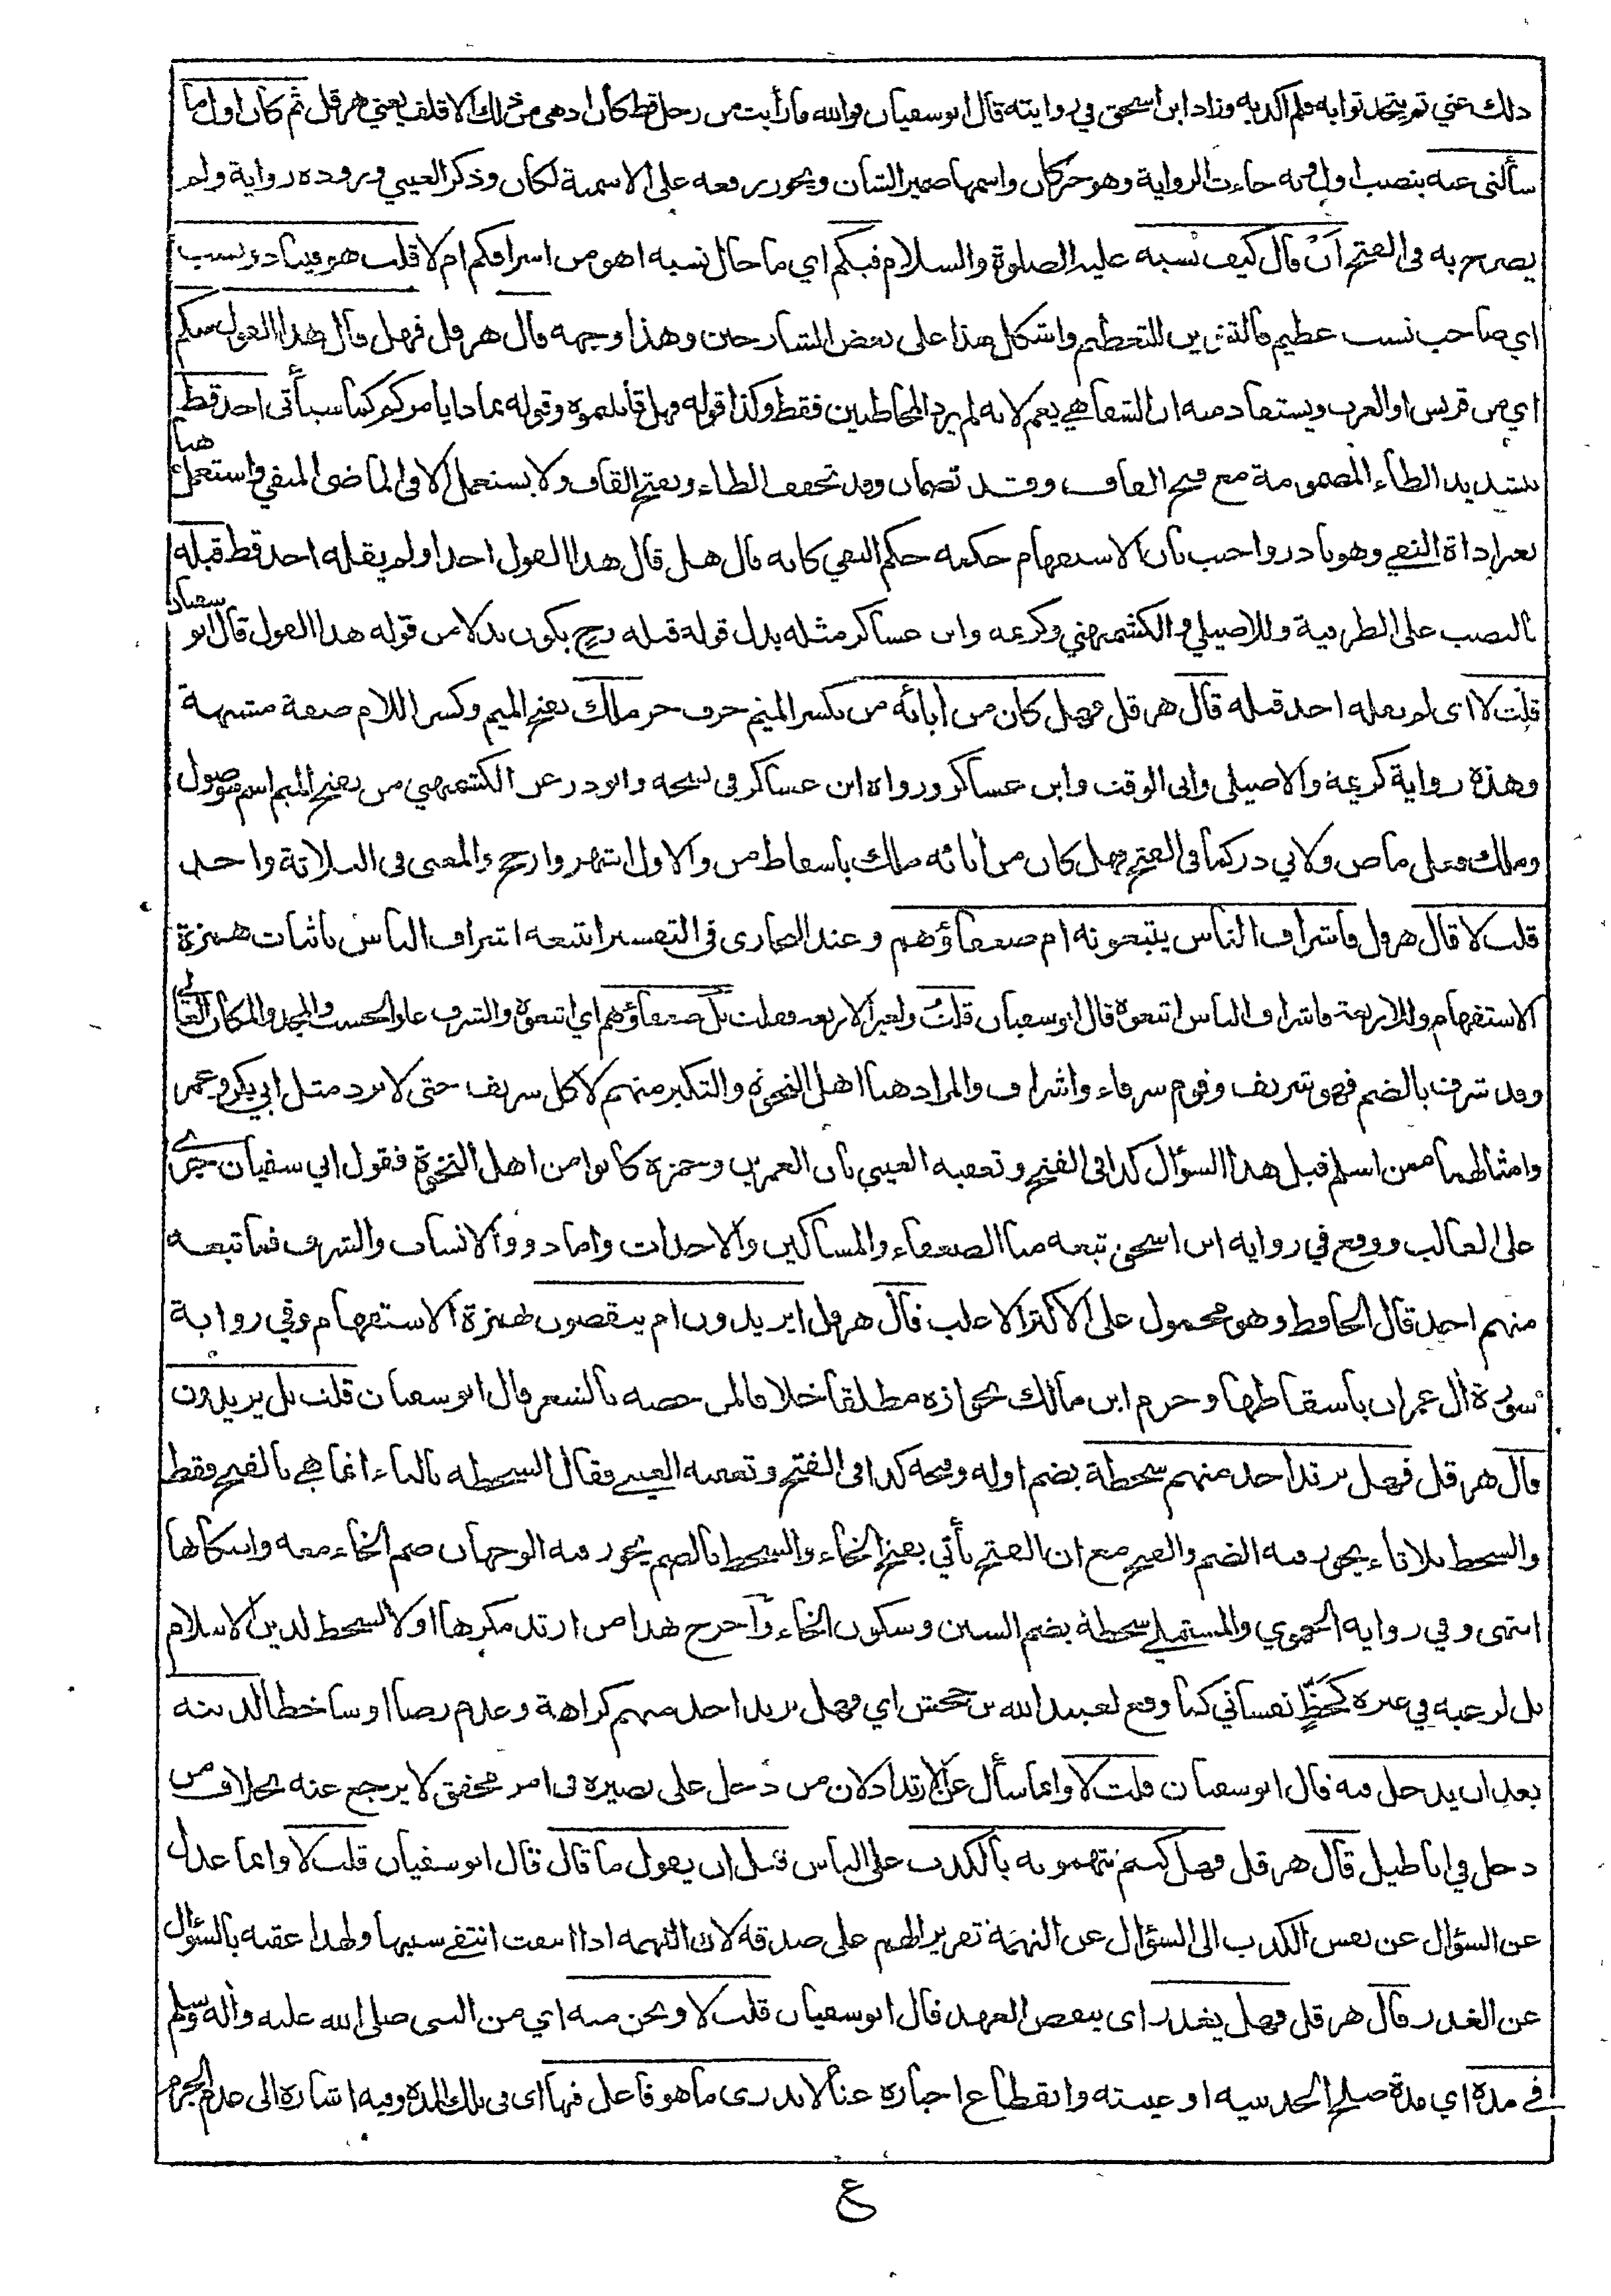 ذلك عني ثم يتحدثوا به فلم اكذبه وزاد ابن اسحق في روايته قال ابو سفيان فوالله ما رأيت من رجل قط كان ادهى من ذلك الاقلف يعني هرقل ثم كان اول ما
سألني عنه بنصب اول وبه جاءت الرواية وهو خبر كان واسمها ضمير الشأن ويجوز رفعه على الاسمية لكان وذكر العيني وروده رواية ولم
يصرح به في الفتح أن قال كيف نسبه عليه الصلوة والسلام فيكم اي ما حال نسبه اهو من اشرافكم ام لا قلت هو فينا ذو نسب
اي صاحب نسب عظيم فالتنوين للتعظيم واشكل هذا على بعض الشارحين وهذا وجهه قال هرقل فهل قال هذا القول منكم
اي من قريش او العرب ويستفاد منه ان الشفاهي يعم لانه لم يرد المخاطبين فقط وكذا قوله فهل قاتلتموه وقوله بماذا يامركم كما سيأتى احد قط
بتشديد الطاء المضمومة مع فتح القاف وقد تضمان وقد تخفف الطاء وبفتح القاف ولا يستعمل الا في الماضي المنفي واستعمل هنا
بغير اداة النفي وهو نادر واجيب بان الاستفهام حكمه حكم النفي كانه قال هل قال هذا القول احد او لم يقله احد قط قبله
بالنصب على الظرفية وللاصيلي والكشميهني وكريمه وابن عساكر مثله بدل قوله قبله وح يكون بدلا من قوله هذا القول قال ابو سفيان
قلت لا اى لم يقله احد قبله قال هرقل فهل كان من أبائه من بكسر الميم حرف جر ملك بفتح الميم وكسر اللام صفة مشبهة
وهذه رواية كريمة والاصيلى وابى الوقت وابن عساكر ورواه ابن عساكر في نسخه وابو ذر عن الكشميهني من بفتح الميم اسم موصول
وملك فعل ماض ولابي ذر كما في الفتح فهل كان من أبائه ملك باسقاط من والاول اشهر وارجح والمعنى فى الثلاثة واحد
قلت لا قال هرقل فاشراف الناس يتبعونه ام ضعفاؤهم وعند البخارى فى التفسير ايتبعه اشراف الناس باثبات همزة
الاستفهام وللاربعة فاشراف الناس اتبعوه قال ابو سفيان قلت ولغير الاربعة فقلت بل ضعفاؤهم اي اتبعوه والشرف علو الحسب والمجد والمكان العالي
وقد شرف بالضم فهو شريف وقوم شرفاء واشراف والمراد هنا اهل النخوة والتكبر منهم لا كل شريف حتى لا يرد مثل ابي بكر وعمر
وامثالهما ممن اسلم قبل هذا السؤال كذا في الفتح وتعقبه العيني بان العمرين وحمزة كانوا من اهل النخوة فقول ابي سفيان جرى
على الغالب ووقع في رواية ابن اسحق تبعه منا الضعفاء والمساكين والاحداث واما ذوو الانساب والشرف فما تبعه
منهم احد قال الحافظ وهو محمول على الاكثر الاغلب قال هرقل ايزيدون ام ينقصون بهمزة الاستفهام وفي رواية
سورة ال عمران باسقاطها وجزم ابن مالك بجوازه مطلقا خلافا لمن خصه بالشعر قال ابو سفيان قلت بل يزيدون
قال هرقل فهل يرتد احد منهم سخطة بضم اوله وفتحه كذا في الفتح وتعقبه العيني فقال السخطه بالتاء انما هي بالفتح فقط
والسخط بلا تاء يجوز فيه الضم والفتح مع ان الفتح يأتي بفتح الخاء والسخط بالضم يجوز فيه الوجهان ضم الخاء معه واسكانها
انتهى وفي رواية الحموي والمستملي سخطة بضم السين وسكون الخاء وأخرج بهذا من ارتد مكرها او لا لسخط لدين الاسلام
بل لرغبه في غيره كحظٍّ نفساني كما وقع لعبيد الله بن جحش اي فهل يرتد احد منهم كراهة وعدم رضا او ساخطا لدينه
بعد ان يدخل فيه قال ابو سفيان قلت لا وانما سأل عن الارتداد لان من دخل على بصيره فى امر محقق لا يرجع عنه بخلاف من
دخل في اباطيل قال هرقل فهل كنتم تتهمونه بالكذب على الناس قبل ان يقول ما قال قال ابو سفيان قلت لا وانما عدل
عن السؤال عن نفس الكذب الى السؤال عن التهمة تقريرا لهم على صدقه لان التهمه اذا انتفت انتفى سببها ولهذا عقبه بالسؤال
عن الغدر قال هرقل فهل يغدر اى ينقض العهد قال ابو سفيان قلت لا ونحن منه اي من النبى صلى الله عليه واله وسلم
في مدة اي مدة صلح الحديبيه او غيبته وانقطاع اخباره عنا لا ندرى ما هو فاعل فيها اى فى تلك المدة وفيه اشارة الى عدم الجزم
ع